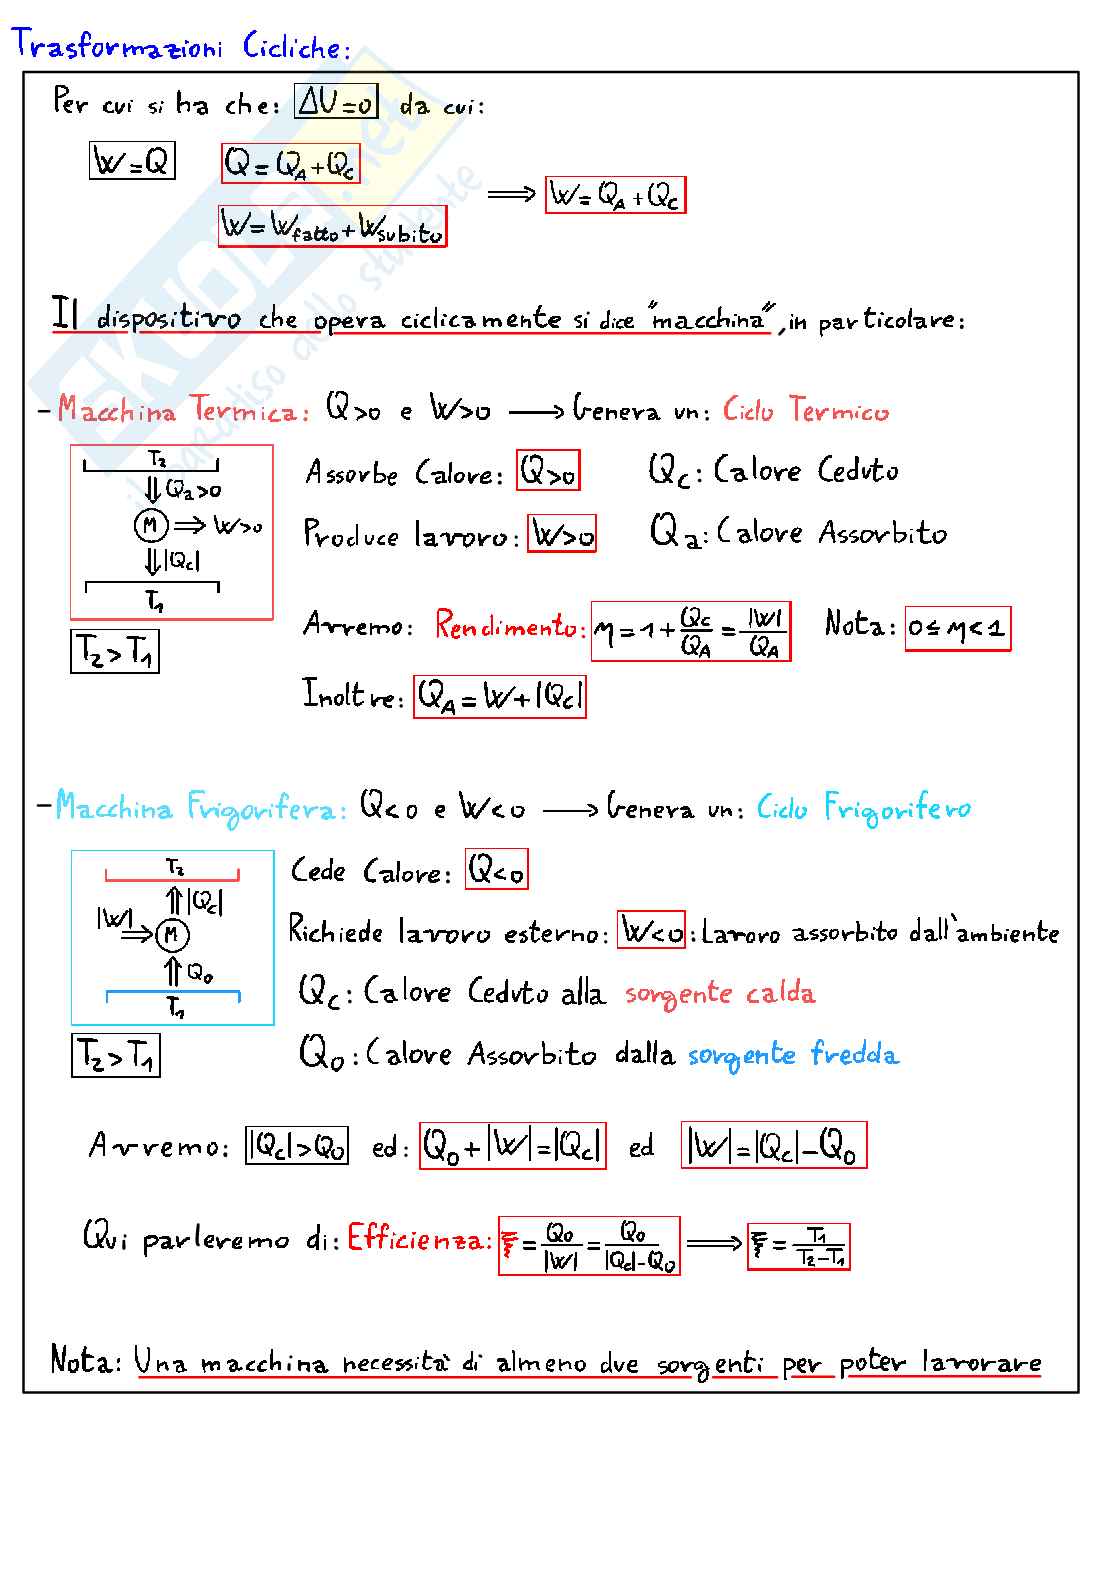 Trasformazioni Cicliche:
Per cui si ha che: ΔU=0 da cui:
W=Q Q=Q_A+Q_C
⟹ W=Q_A+Q_C
W=W_fatto+W_subito
Il dispositivo che opera ciclicamente si dice "macchina", in particolare:
-Macchina Termica: Q>0 e W>0 ⟶ Genera un: Ciclo Termico
T₂
⇓ Q_a>0
M ⟹ W>0
⇓ |Q_c|
T₁
T₂>T₁
Assorbe Calore: Q>0 Q_c: Calore Ceduto
Produce lavoro: W>0 Q_a: Calore Assorbito
Avremo: Rendimento: η=1+Q_C/Q_A=|W|/Q_A Nota: 0≤η<1
Inoltre: Q_A=W+|Q_C|
-Macchina Frigorifera: Q<0 e W<0 ⟶ Genera un: Ciclo Frigorifero
T₂
⇑ |Q_c|
|W| ⟹ M
⇑ Q₀
T₁
T₂>T₁
Cede Calore: Q<0
Richiede lavoro esterno: W<0: Lavoro assorbito dall'ambiente
Q_c: Calore Ceduto alla sorgente calda
Q₀: Calore Assorbito dalla sorgente fredda
Avremo: |Q_c|>Q₀ ed: Q₀+|W|=|Q_c| ed |W|=|Q_c|-Q₀
Qui parleremo di: Efficienza: ξ=Q₀/|W|=Q₀/|Q_c|-Q₀ ⟹ ξ=T₁/T₂-T₁
Nota: Una macchina necessità di almeno due sorgenti per poter lavorare
SKUOLA.net
il paradiso dello studente